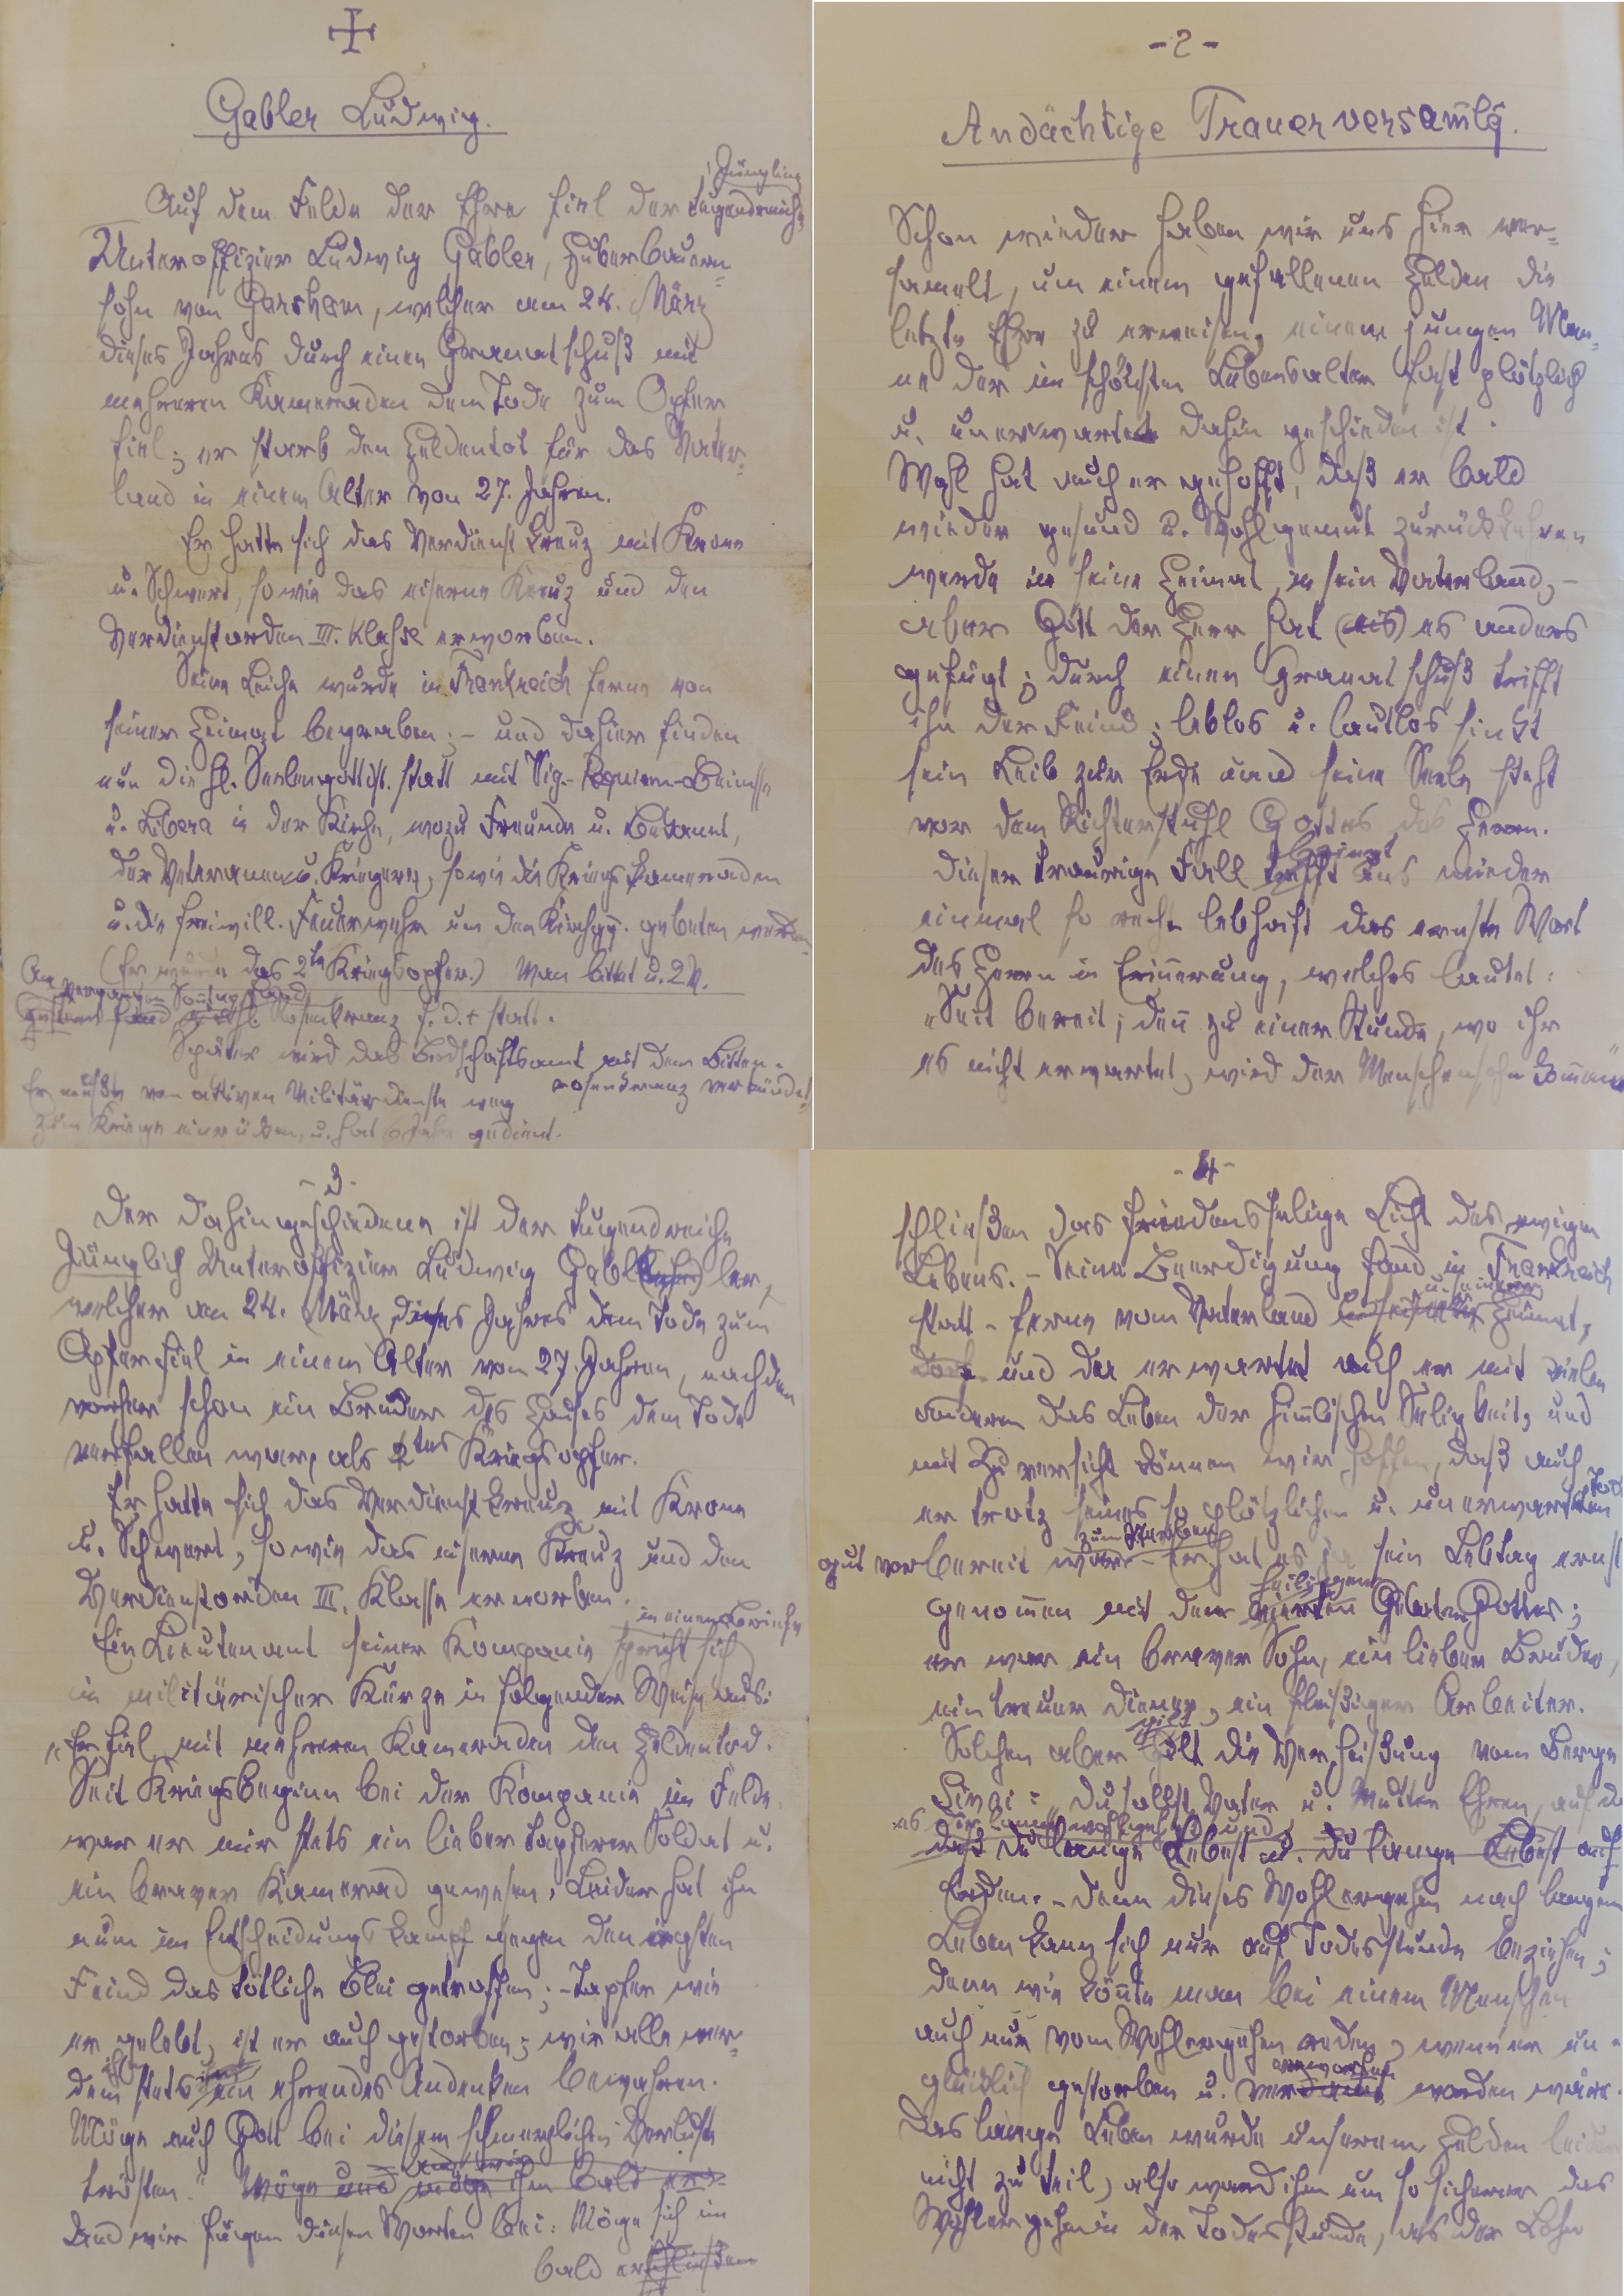 Gabler Ludwig.
Jüngling
Auf dem Felde der Ehre fiel der tugendreiche
Unteroffizier Ludwig Gabler, Huberbauern-
sohn von Garsham, welcher am 24. März
dieses Jahres durch einen Granatschuß mit
mehreren Kameraden dem Tode zum Opfer
fiel; er starb den Heldentot für das Vater-
land in einem Alter von 27. Jahren.
Er hatte sich das Verdienstkreuz mit Krone
u. Schwert, sowie das eiserne Kreuz und den
Verdienstorden III. Klasse erworben.
Seine Leiche wurde in Frankreich ferne von
seiner Heimat begraben; - und dahier finden
nun die hl. Seelengottsd. statt mit Vig- Requiem-Beimesse
u. Libera in der Kirche, wozu Freunde u. Bekannt,
der Veteranen u. Krieger, sowie die Kriegskameraden
u. die freiwill. Feuerwehr um den Kirchgg. gebeten werden
(Er wurde das 2te Kriegsopfer.) Man bittet u. 2 V.
Am vergangen Sonntag fand
gestern fand Rosenkranz f. d. + statt.
Später wird das Bruderschaftsamt mit dem Bitten-
rosenkranz verkündet
Er mußte vom aktiven Militärdienste weg
zum Kriege einrücken, u. hat 6 Jahre gedient.
- 2 -
Andächtige Trauerversamlg.
Schon wieder haben wir uns hier ver-
samelt, um einem gefallenen Helden die
letzte Ehre zu erweisen, einem jungen Man-
ne der im schönsten Lebensalter fast plötzlich
u. unerwartet dahin geschieden ist.
Wohl hat auch er gehofft, daß er bald
wieder gesund u. Wohlgemut zurückkehren
werde in seine Heimat, in sein Vaterland, -
aber Gott der Herr hat es anders
gefügt; durch einen Granatschuß trifft
ihn der Feind; leblos u. lautlos sinkt
sein Leib zur Erde und seine Seele steht
vor dem Richterstuhl Gottes des Herrn.
bringt
Dieser traurige Fall trifft uns wieder
einmal so recht lebhaft das ernste Wort
des Herrn in Erinnerung, welches lautet:
"Seit bereit; den zu einer Stunde, wo ihr
es nicht erwartet, wird der Menschensohn komen"
- 3 -
Der Dahingeschiedene ist der tugendreiche
Jünglich Unteroffizier Ludwig Gabler,
welcher am 24. März dieses Jahres dem Tode zum
Opfer fiel in einem Alter von 27 Jahren, nachdem
vorher schon ein Bruder des Hauses dem Tode
verfallen war, als 2tes Kriegsopfer.
Er hatte sich das Verdienstkreuz mit Krone
u. Schwert, sowie das eiserne Kreuz und den
Verdienstorden III. Klasse erworben.
in einem Briefe
Ein Lieutenant seiner Kompanie spricht sich
in militärischer Kürze in folgender Weise aus:
"Er fiel mit mehreren Kameraden den Heldentod.
Seit Kriegsbeginn bei der Kompanie im Felde
war er mir stets ein lieber tapferer Soldat u.
ein braver Kamerad gewesen. Leider hat ihn
nun im Entscheidungskampf gegen den ärgsten
Feind das tötliche Blei getroffen; - Tapfer wie
er gelebt, ist er auch gestorben; wir alle wer-
ihm
den stets ein ehrendes Andenken bewahren.
Möge euch Gott bei diesem schmerzlichen Verluste
trösten." Möge und möge ihm bald ers-
Und wir fügen diesen Worten bei: Möge sich im
bald erschließen
- 4 -
schließen das friedensselige Licht des ewigen
Lebens. - Seine Beerdigung fand in Frankreich
u. seiner
statt - ferne vom Vaterland Heimat,
dort und da erwartet auch er mit vielen
anderen das Leben der himlischen Seligkeit, und
mit Zuversicht können wir hoffen, daß auch
er trotz seines so plötzlichen u. unerwarteten Tod
zum Sterben
gut vorbereit war. - Er hat es ja sein Lebtag ernst
heiligen
genomen mit dem vierten Gebote Gottes;
er war ein braver Sohn, ein lieber Bruder,
ein treuer Diener, ein fleißiger Arbeiter.
Solchen aber gilt die Verheißung vom Berge
Sinai: Du sollst Vater u. Mutter Ehren, auf das
es dir wohlergehe und
daß du lange Lebest u. du lange Lebest auf
Erden. - Denn dieses Wohlergehen nach langem
Leben kann sich nur auf Todesstunde beziehen;
denn wie könnte man bei einem Menschen
auch nur vom Wohlergehen reden, wenn er un-
verworfen
glücklich gestorben u. worden wäre.
Das lange Leben wurde unserem Helden leider
nicht zu teil, also ward ihm um so sicherer das
Wohlergehen in der Todesstunde, als der Lohn